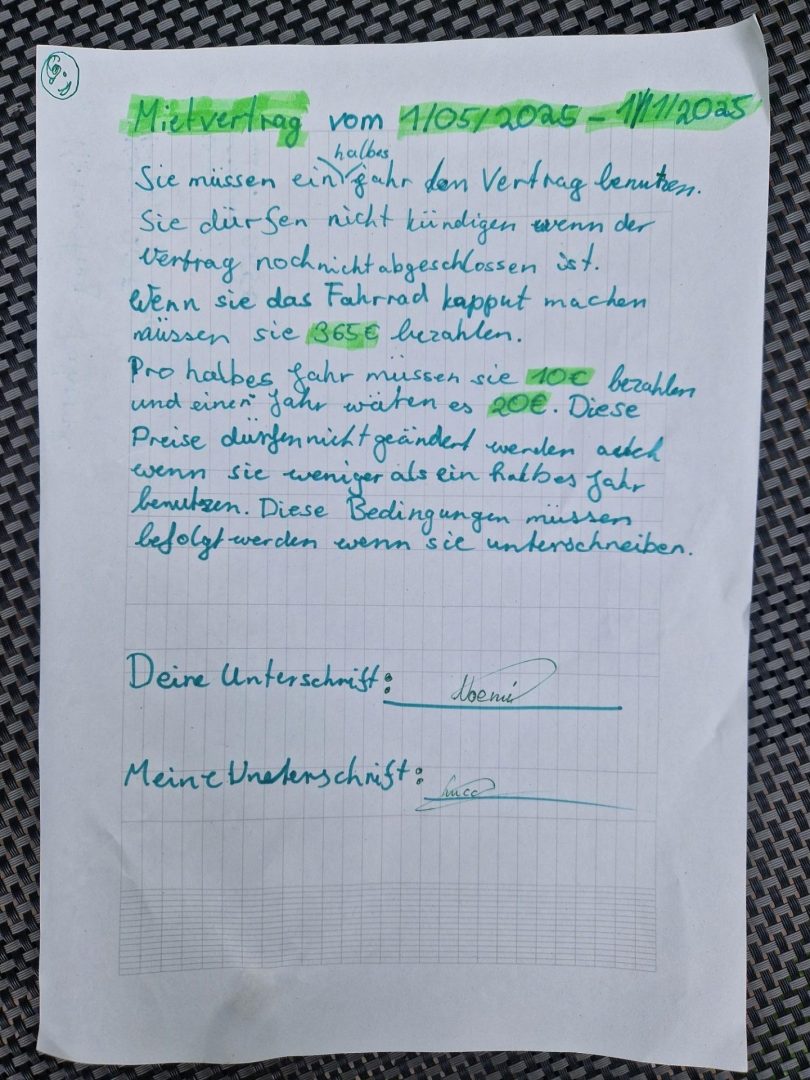 Mietvertrag vom 1/05/2025 - 1/11/2025
halbes
Sie müssen ein Jahr den Vertrag benutzen.
Sie dürfen nicht kündigen wenn der
Vertrag noch nicht abgeschlossen ist.
Wenn sie das Fahrrad kapput machen
müssen sie 365€ bezahlen.
Pro halbes Jahr müssen sie 10€ bezahlen
und einen Jahr wären es 20€. Diese
Preise dürfen nicht geändert werden auch
wenn sie weniger als ein halbes Jahr
benutzen. Diese Bedingungen müssen
befolgt werden wenn sie unterschreiben.
Deine Unterschrift: Noemi
Meine Unterschrift: Luca